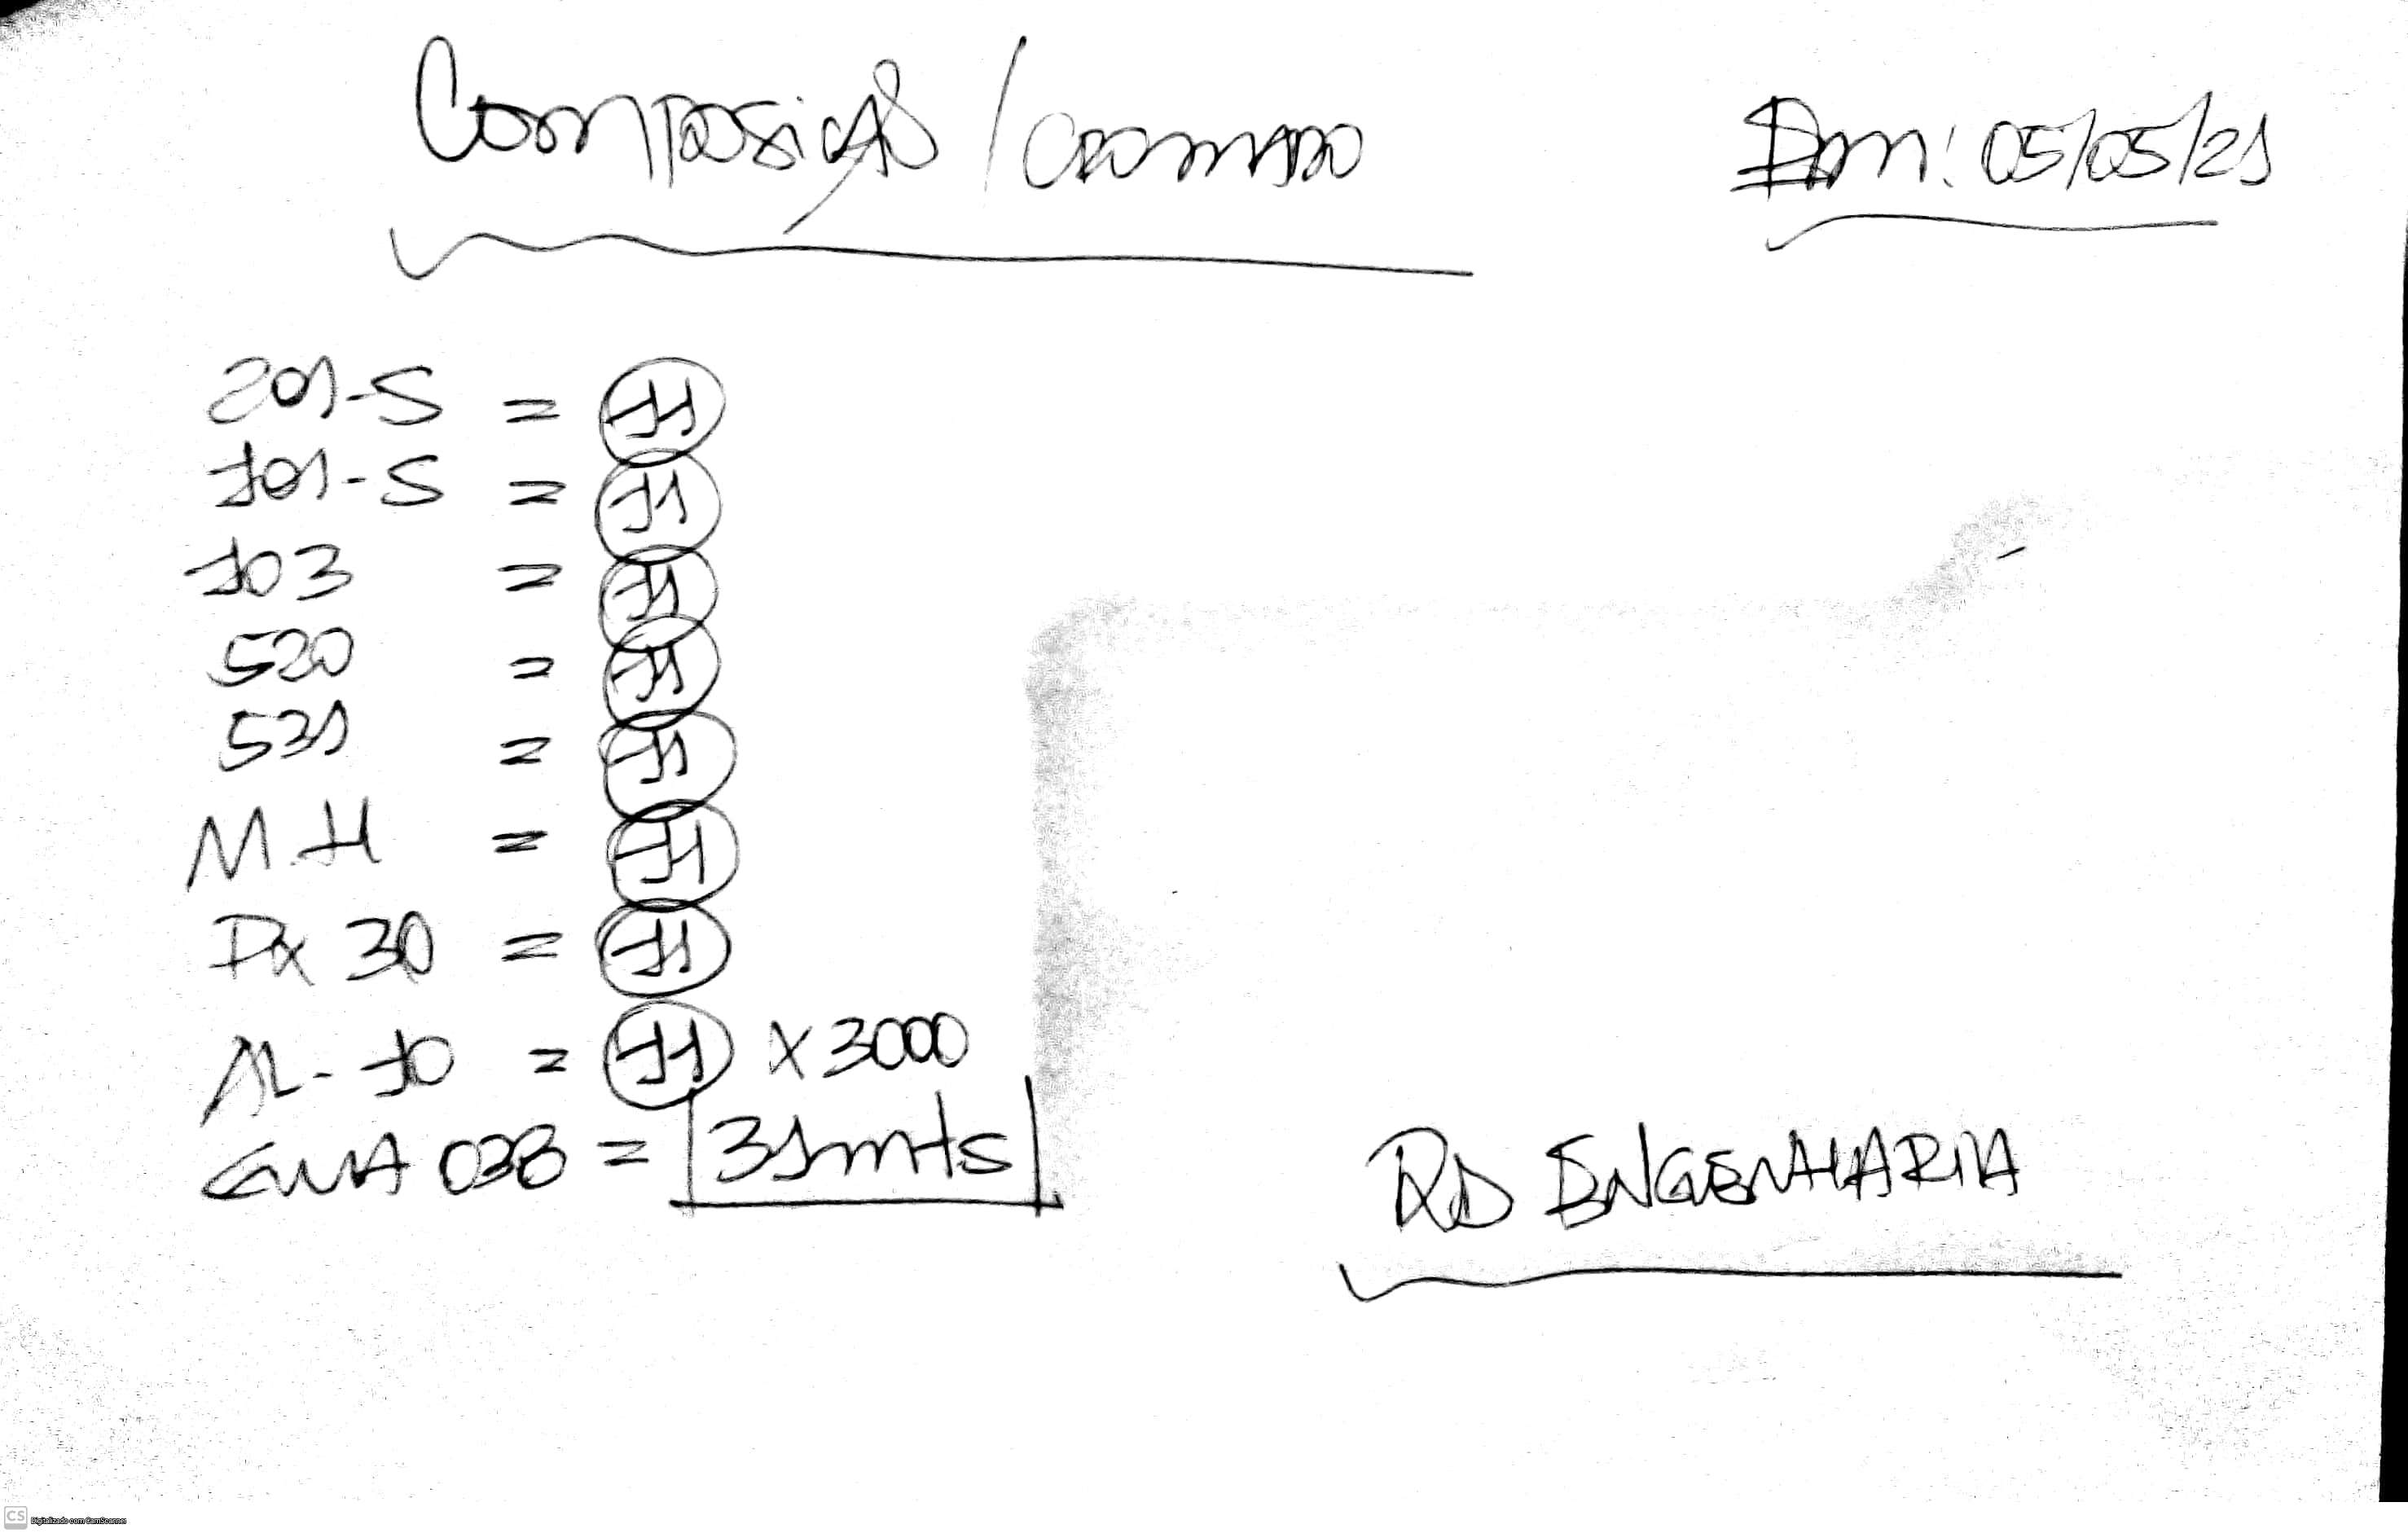 Composição / cromado
Dom: 05/05/21
201-S = 11
701-S = 11
703 = 11
520 = 11
531 = 11
M.H = 11
DX 30 = 11
AL-70 = 11 X 3000
038 = 31mts
RD ENGENHARIA
CS Digitalizado com CamScanner